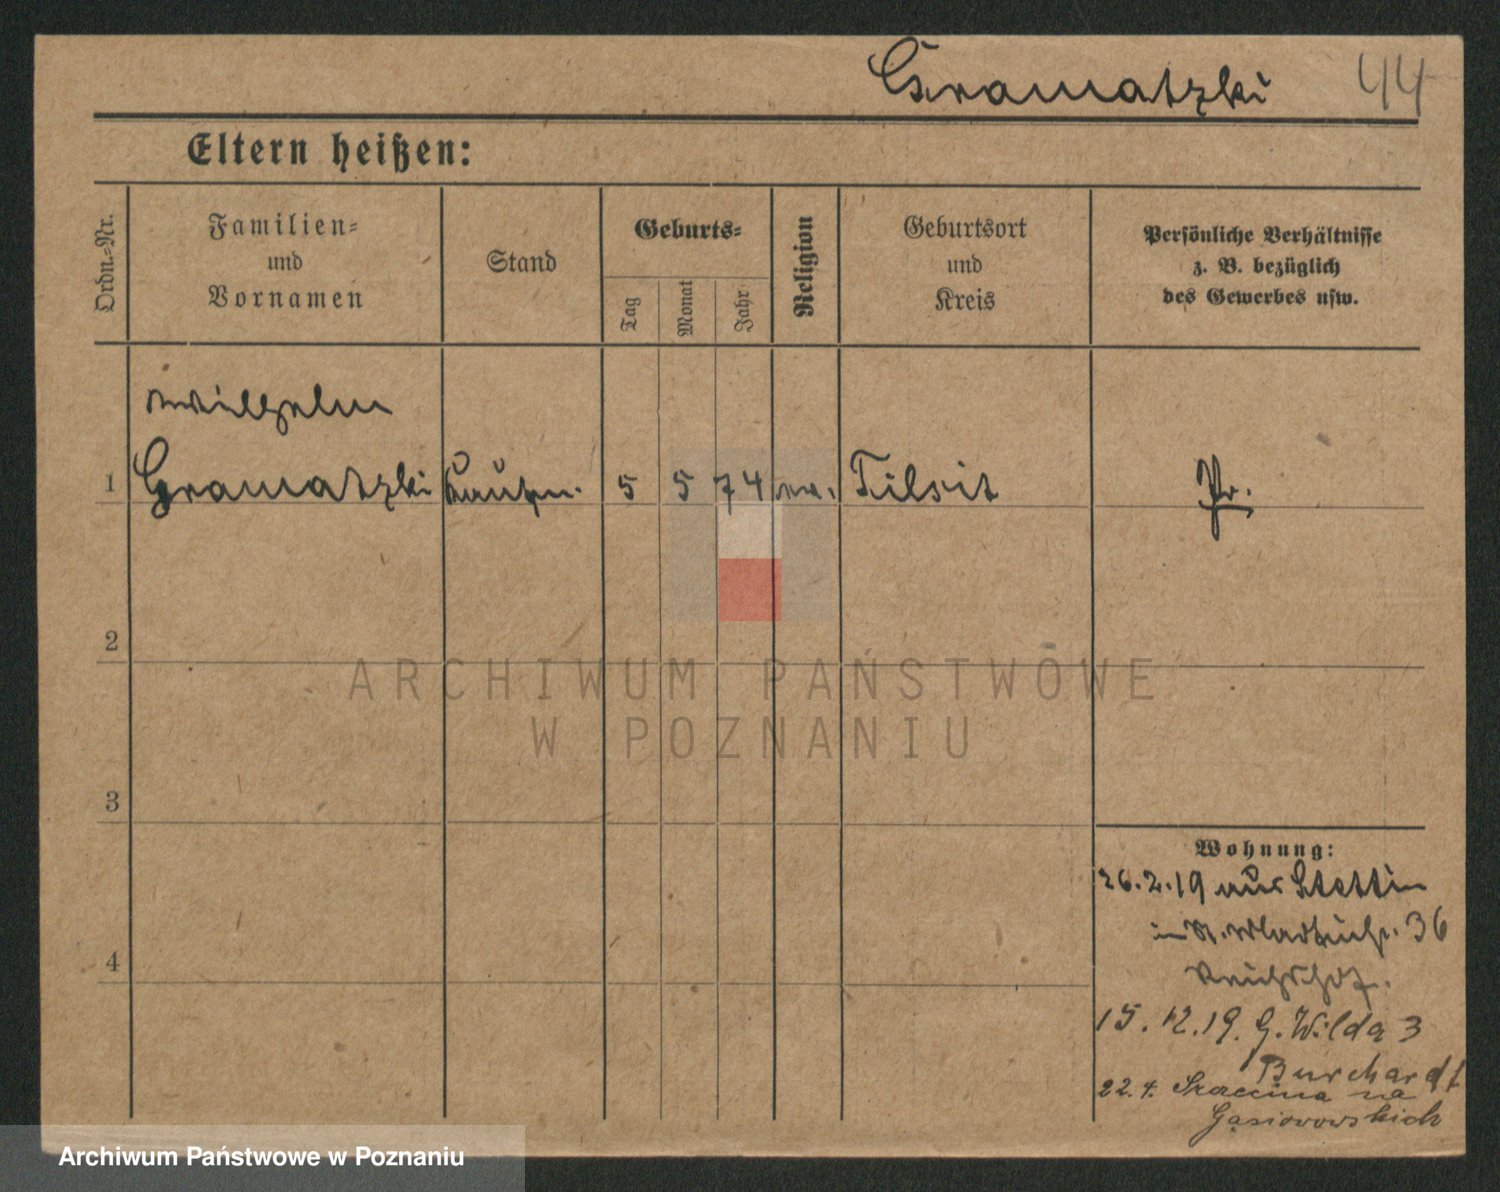 Gramatzki 44
Eltern heißen:
Ordn.=Nr.
Familien=
und
Vornamen
Stand
Geburts=
Tag
Monat
Jahr
Religion
Geburtsort
und
Kreis
Persönliche Verhältnisse
z. B. bezüglich
des Gewerbes usw.
Wilhelm
1 Gramatzki Kaufm. 5 5 74 ev. Tilsit Pr.
2
3
4
Wohnung:
26.2.19 aus Stettin
in 36
15.12.19. G. Wilda 3
Burchardt
22.4. na
Gąsiorowskich
ARCHIWUM PAŃSTWOWE
W POZNANIU
Archiwum Państwowe w Poznaniu